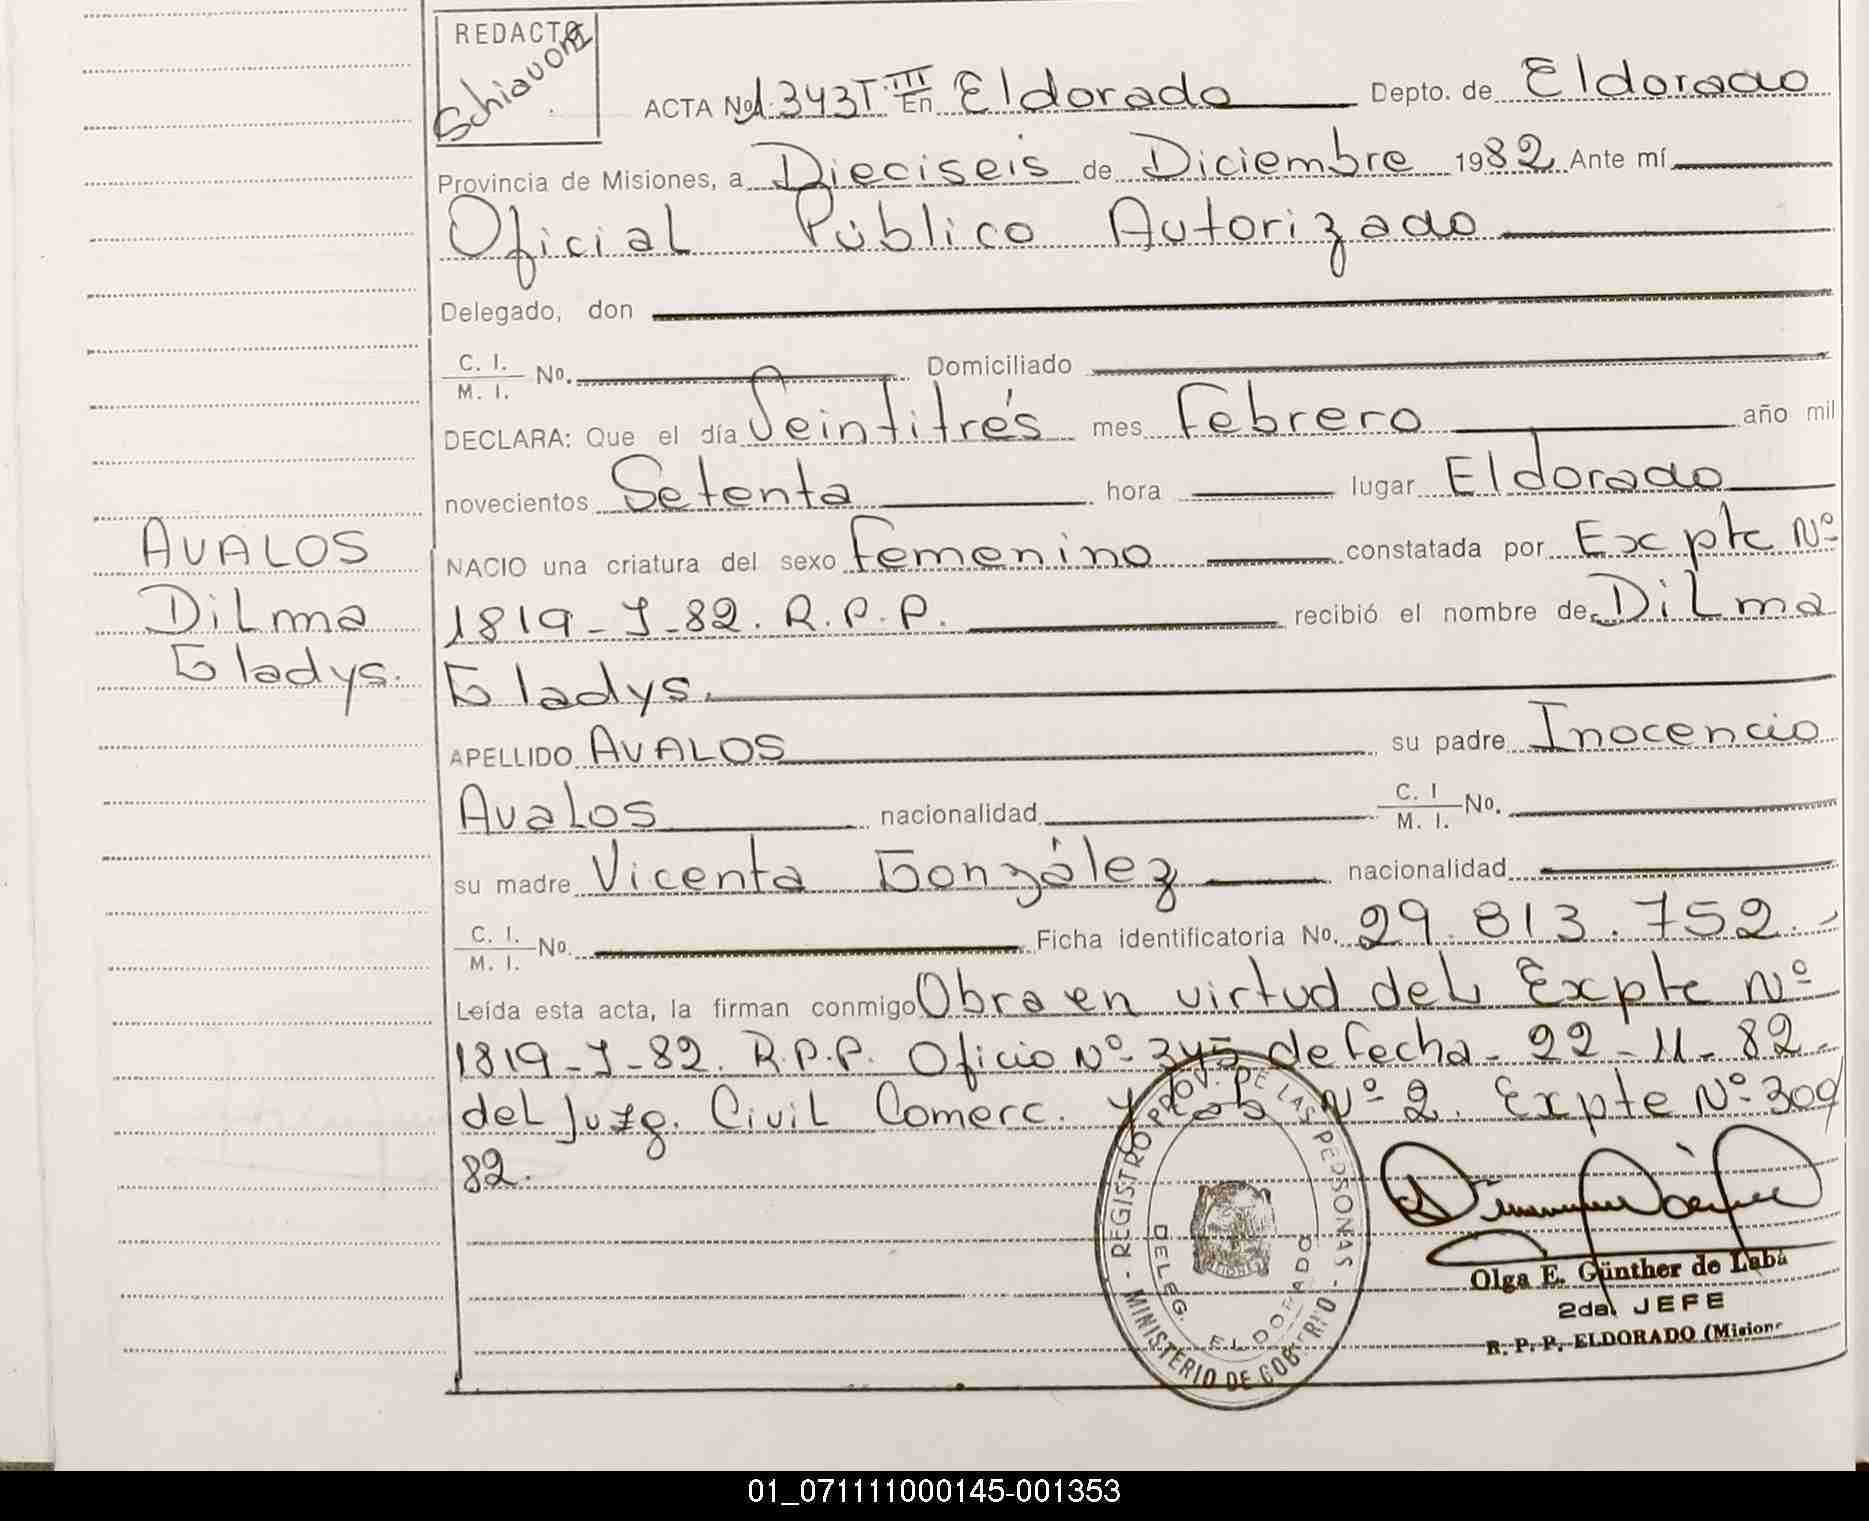 REDACTO
Schiavoni
ACTA No. 1.343 T. III En Eldorado Depto. de Eldorado
Provincia de Misiones, a Dieciseis de Diciembre 1982 Ante mí
Oficial Público Autorizado
Delegado, don
C. I.
M. I. No. Domiciliado
DECLARA: Que el día Veintitrés mes Febrero año mil
novecientos Setenta hora lugar Eldorado
NACIO una criatura del sexo Femenino constatada por Expte Nº
1819-J-82. R.P.P. recibió el nombre de Dilma
Gladys.
AVALOS
Dilma
Gladys.
APELLIDO AVALOS su padre Inocencio
Avalos nacionalidad C. I
M. I. No.
su madre Vicenta González nacionalidad
C. I.
M. I. No. Ficha identificatoria No. 29.813.752.-
Leída esta acta, la firman conmigo Obra en virtud del Expte Nº
1819-J-82. R.P.P. Oficio Nº 345 de fecha - 22-11-82.-
del Juzg. Civil Comerc. y Lab Nº 2. Expte Nº 309/
82.
- REGISTRO PROV. DE LAS PERSONAS -
MINISTERIO DE GOBIERNO
DELEG. ELDORADO
Olga E. Günther de Labá
2da. JEFE
R. P. P. ELDORADO (Misiones
01_071111000145-001353